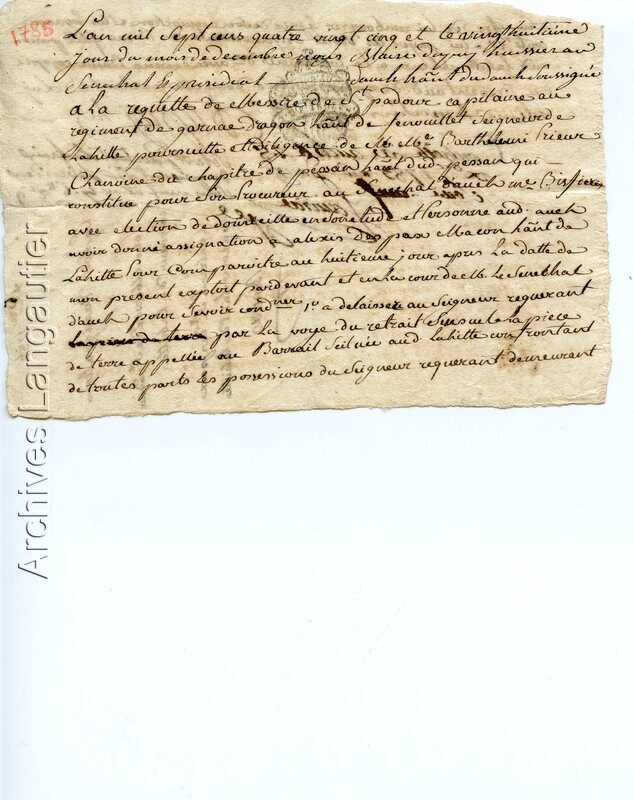 1785
L'an mil sept cens quatre vingt cinq et le vingt huitieme
jour du mois de decembre nous Blaise dupuy huissier au
Senechal & presidial dauch hānt dud auch soussigné
a la requette de Messire de St padour capitaine au
regiment de dragon hānt de fenouillet Seigneur de
Lahitte poursuitte et diligence de Barthelemi prieur
Chanoine du chapitre de pessan hānt dud. pessan qui
constitue pour son procureur au Senechal dauch me
avec election de domicille en son etude et Personne aud. auch
avoir donné assignation à alexis pax Macon hānt de
Lahitte pour Comparoitre au huitieme jour apres La datte de
mon present exploit pardevant et en la cour de M. le Senechal
dauch pour se voir condner 1o a delaisser au Seigneur requerant
par La voye du retrait Censuel la piece
de terre appellée au Barrail scituée aud. Lahitte confrontant
de toutes parts les possessions du Seigneur requerant demeurant
Archives Langautier